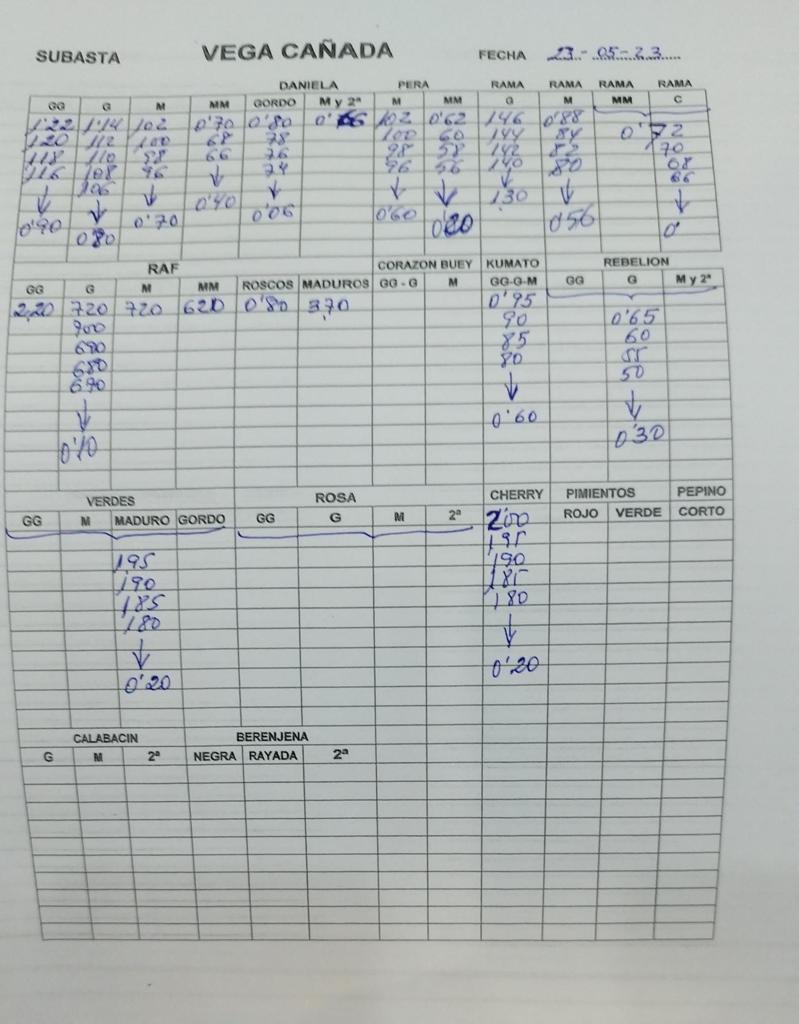 SUBASTA VEGA CAÑADA FECHA 23-05-23
DANIELA PERA RAMA RAMA RAMA RAMA
GG G M MM GORDO M y 2ª M MM G M MM C
1'22 1'14 102 0'70 0'80 0'66 102 0'62 146 0'88 0'72
120 112 100 68 78 100 60 144 84 70
118 110 98 66 76 98 58 142 82 68
116 108 96 ↓ 74 96 56 140 80 66
↓ 106 ↓ 0'40 ↓ ↓ ↓ ↓ ↓ ↓
0'90 ↓ 0'70 0'06 0'60 0'20 130 0'56 0'
0'80
RAF CORAZON BUEY KUMATO REBELION
GG G M MM ROSCOS MADUROS GG - G M GG-G-M GG G M y 2ª
2,20 720 720 620 0'80 3,70 0'95
700 90 0'65
690 85 60
680 80 55
690 ↓ 50
↓ 0'60 ↓
0'10 0'30
VERDES ROSA CHERRY PIMIENTOS PEPINO
GG M MADURO GORDO GG G M 2ª 2'00 ROJO VERDE CORTO
195
195 190
190 185
185 180
180 ↓
↓ 0'20
0'20
CALABACIN BERENJENA
G M 2ª NEGRA RAYADA 2ª